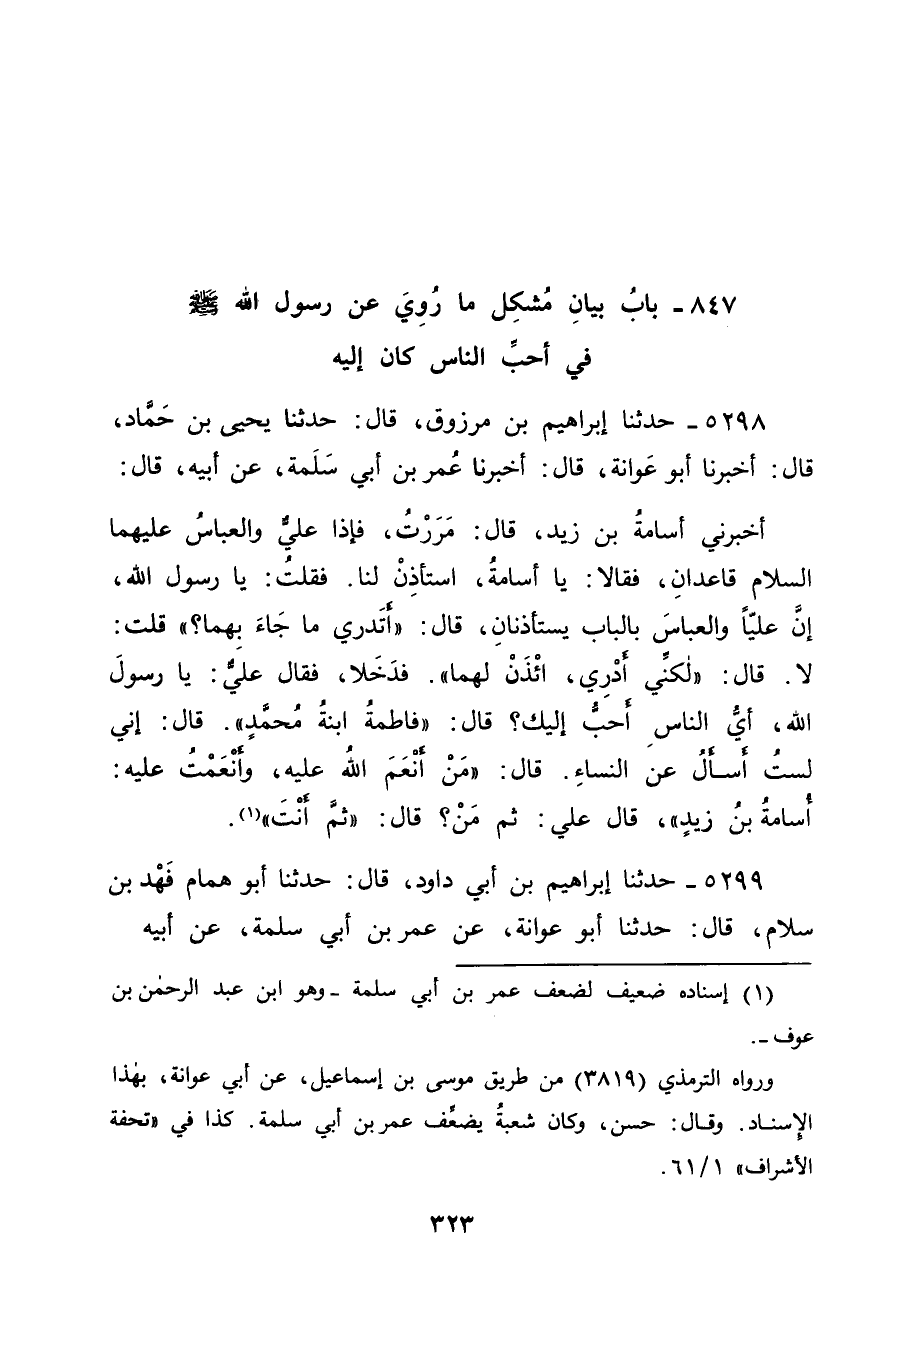 ٨٤٧ ـ بابُ بيانِ مُشكِل ما رُوِيَ عن رسول الله ﷺ
في أحبِّ الناس كان إليه
٥٢٩٨ ـ حدثنا إبراهيم بن مرزوق، قال: حدثنا يحيى بن حَمَّاد،
قال: أخبرنا أبو عَوانة، قال: أخبرنا عُمر بن أبي سَلَمة، عن أبيه، قال:
أخبرني أسامةُ بن زيد، قال: مَرَرْتُ، فإذا عليٌّ والعباسُ عليهما
السلام قاعدانِ، فقالا: يا أسامةُ، استأذِنْ لنا. فقلتُ: يا رسول الله،
إنَّ عليّاً والعباسَ بالباب يستأذنانِ، قال: «أَتَدري ما جَاءَ بِهما؟» قلت:
لا. قال: «لٰكنِّي أَدْرِي، ائْذَنْ لهما». فدَخَلا، فقال عليٌّ: يا رسولَ
الله، أيُّ الناسِ أَحبُّ إليك؟ قال: «فاطمةُ ابنةُ مُحمَّدٍ». قال: إني
لستُ أَسأَلُ عن النساءِ. قال: «مَنْ أَنْعَمَ اللهُ عليه، وأَنْعَمْتُ عليه:
أُسامةُ بنُ زيدٍ»، قال علي: ثم مَنْ؟ قال: «ثمَّ أَنْتَ»(١).
٥٢٩٩ ـ حدثنا إبراهيم بن أبي داود، قال: حدثنا أبو همام فَهْد بن
سلام، قال: حدثنا أبو عوانة، عن عمر بن أبي سلمة، عن أبيه
(١) إسناده ضعيف لضعف عمر بن أبي سلمة ـ وهو ابن عبد الرحمٰن بن
عوف ـ.
ورواه الترمذي (٣٨١٩) من طريق موسى بن إسماعيل، عن أبي عوانة، بهٰذا
الإِسناد. وقال: حسن، وكان شعبةُ يضعِّف عمر بن أبي سلمة. كذا في «تحفة
الأشراف» ٦١/١.
٣٢٣